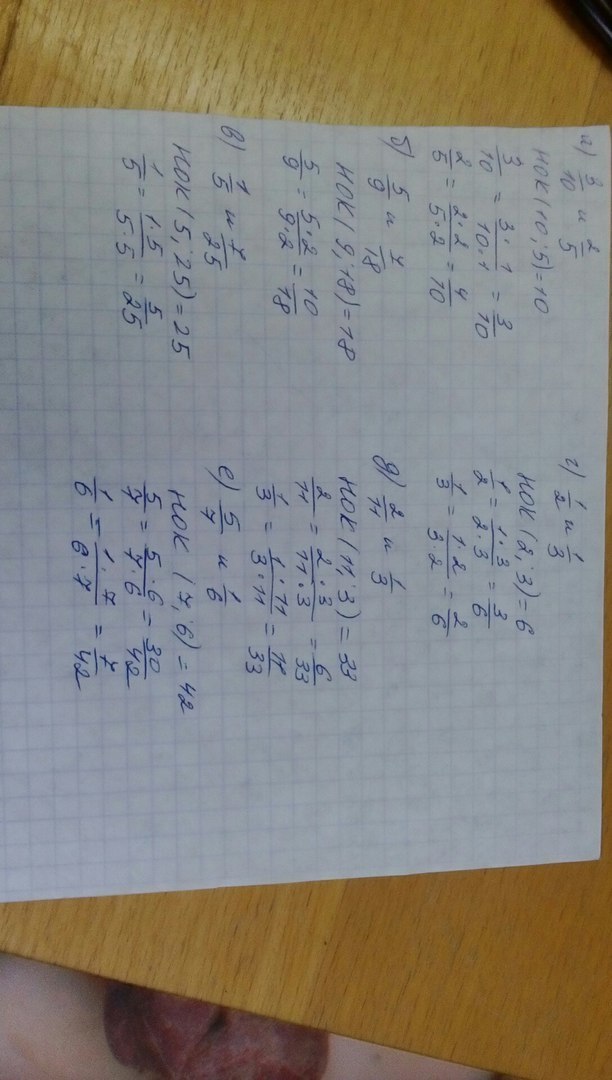 а) 3/10 и 2/5
НОК(10;5)=10
3/10 = 3·1/10·1 = 3/10
2/5 = 2·2/5·2 = 4/10
б) 5/9 и 7/18
НОК(9;18)=18
5/9 = 5·2/9·2 = 10/18
в) 1/5 и 7/25
НОК(5;25)=25
1/5 = 1·5/5·5 = 5/25
г) 1/2 и 1/3
НОК(2;3)=6
1/2 = 1·3/2·3 = 3/6
1/3 = 1·2/3·2 = 2/6
д) 2/11 и 1/3
НОК(11;3)=33
2/11 = 2·3/11·3 = 6/33
1/3 = 1·11/3·11 = 11/33
е) 5/7 и 1/6
НОК (7;6)=42
5/7 = 5·6/7·6 = 30/42
1/6 = 1·7/6·7 = 7/42